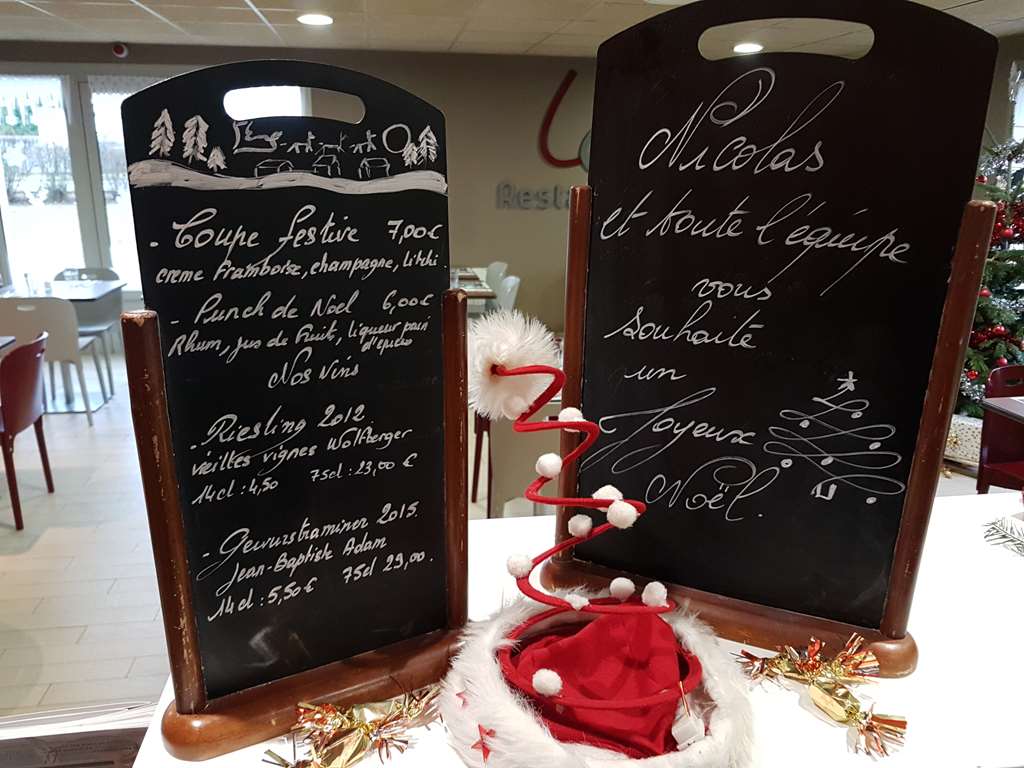 - Coupe festive 7,00€
creme Framboise, champagne, litchi
- Punch de Noël 6,00€
Rhum, jus de Fruit, liqueur pain
d'épices
Nos vins
- Riesling 2012
vieilles vignes Wolfberger
14cl : 4,50 75cl : 23,00 €
- Gewurstraminer 2015.
Jean-Baptiste Adam
14cl : 5,50€ 75cl 29,00.
Nicolas
et toute l'équipe
vous
souhaite
un
Joyeux
Noël.
Resta